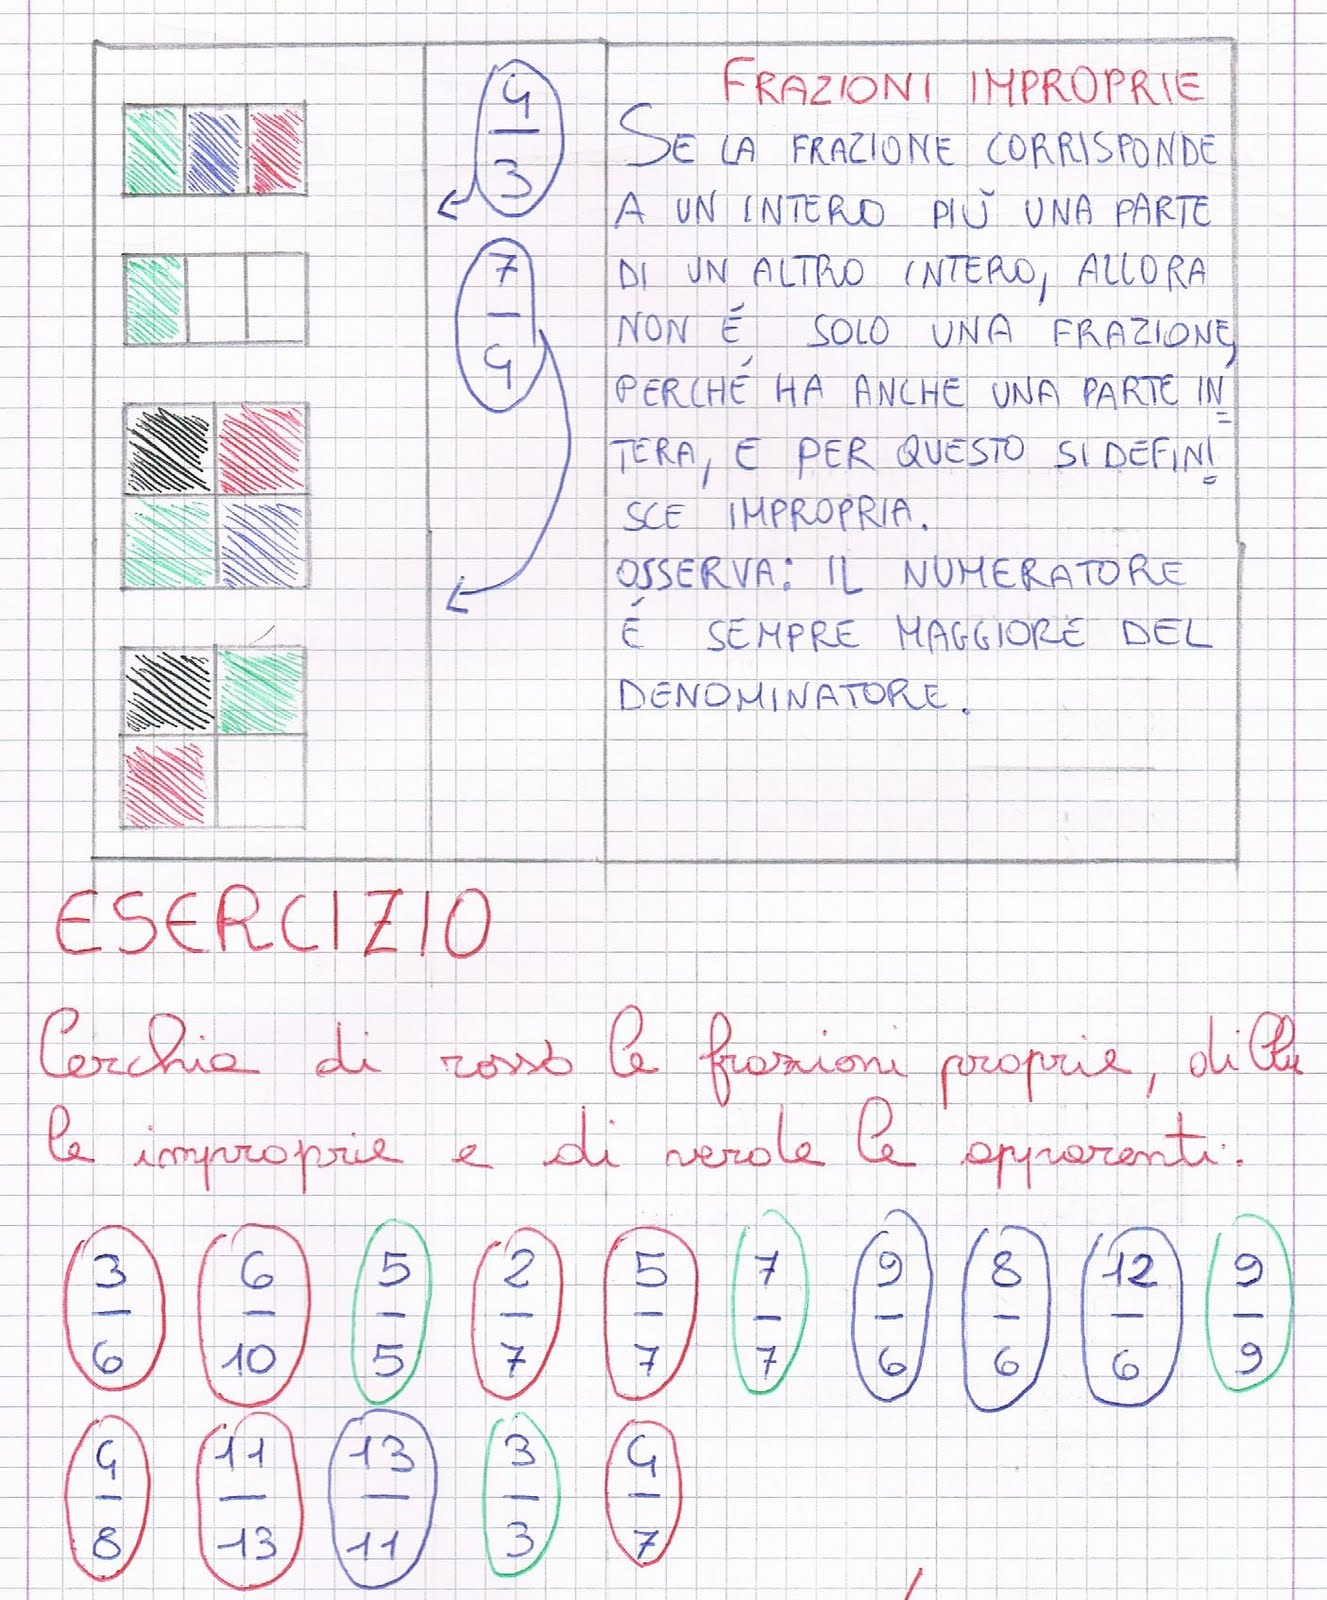 4/3
7/4
FRAZIONI IMPROPRIE
SE LA FRAZIONE CORRISPONDE
A UN INTERO PIÙ UNA PARTE
DI UN ALTRO INTERO, ALLORA
NON É SOLO UNA FRAZIONE,
PERCHÉ HA ANCHE UNA PARTE IN
TERA, E PER QUESTO SI DEFINI
SCE IMPROPRIA.
OSSERVA: IL NUMERATORE
É SEMPRE MAGGIORE DEL
DENOMINATORE.
ESERCIZIO
Cerchia di rosso le frazioni proprie, di blu
le improprie e di verde le apparenti.
3/6 6/10 5/5 2/7 5/7 7/7 9/6 8/6 12/6 9/9
4/8 11/13 13/11 3/3 4/7